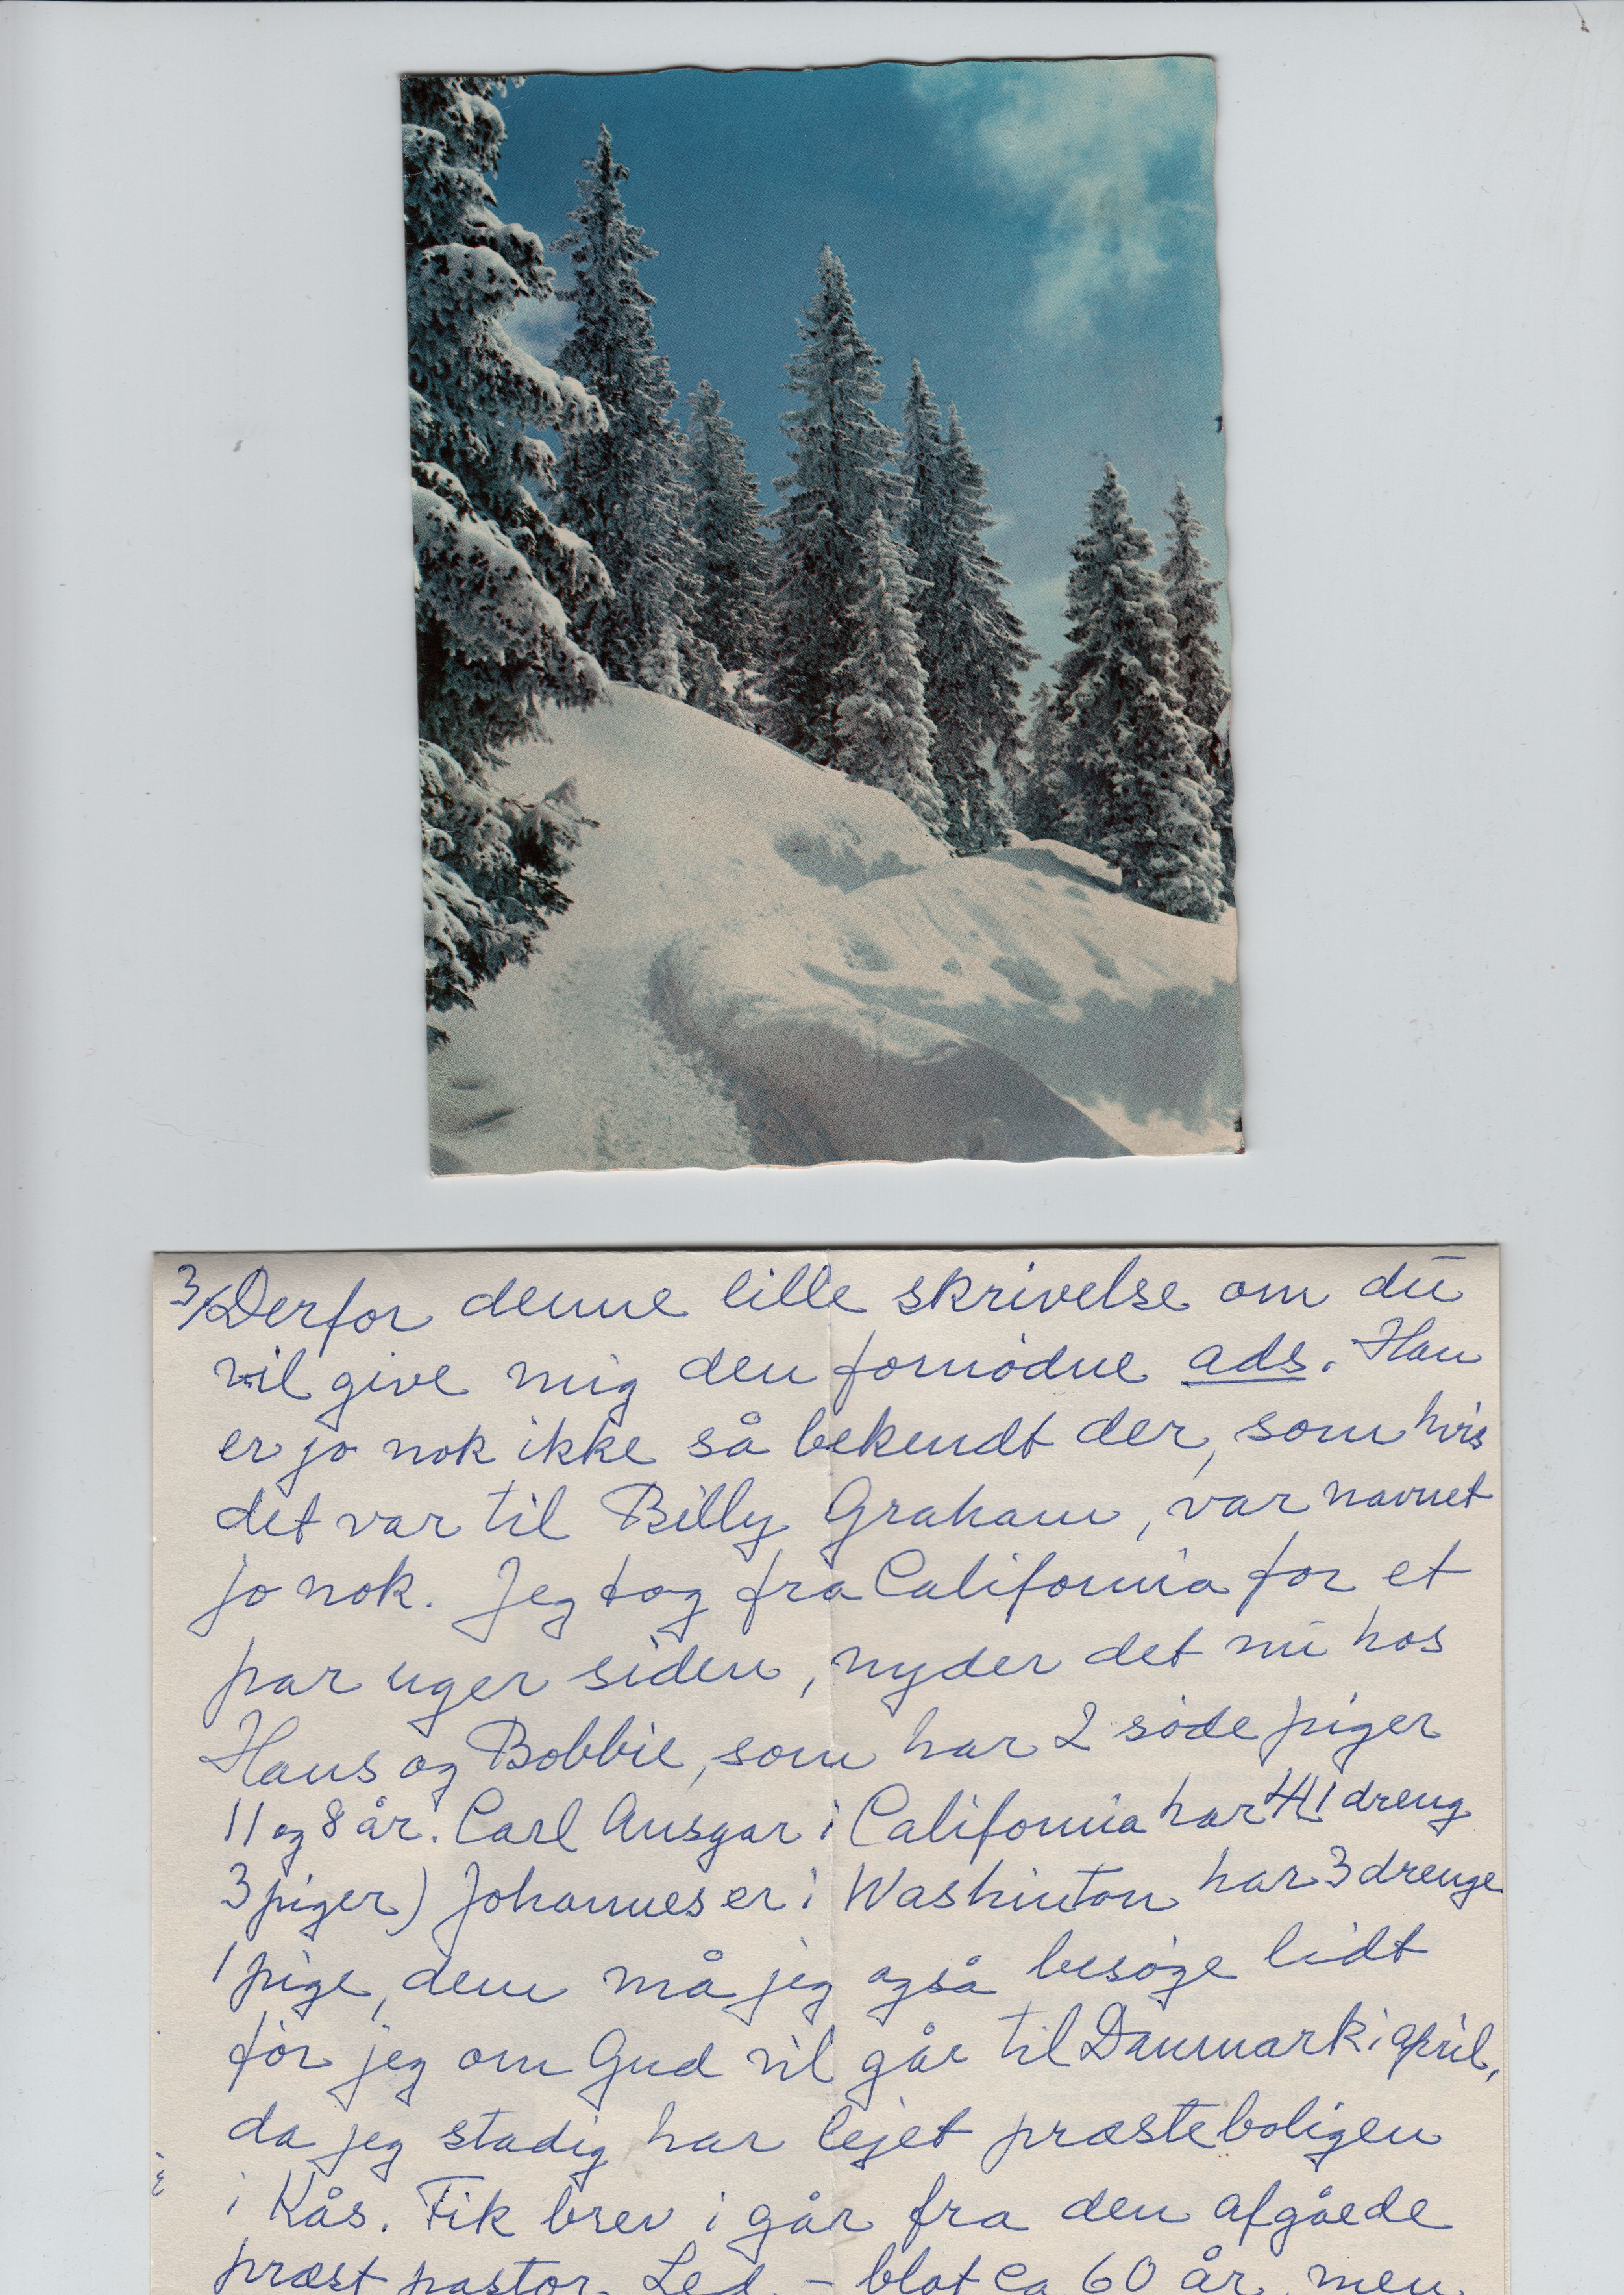 3/ Derfor denne lille skrivelse om du
vil give mig den fornødne ads. Han
er jo nok ikke så bekendt der, som hvis
det var til Billy Graham, var navnet
jo nok. Jeg tog fra California for et
par uger siden, nyder det nu hos
Hans og Bobbie, som har 2 søde piger
11 og 8 år. Carl Ansgar i California har 1 dreng
3 piger) Johannes er i Washinton har 3 drenge
1 pige, dem må jeg også besøge lidt
før jeg om Gud vil går til Danmark i april,
da jeg stadig har lejet præsteboligen
i Kås. Fik brev i går fra den afgåede
præst pastor Led. – blot ca 60 år, men